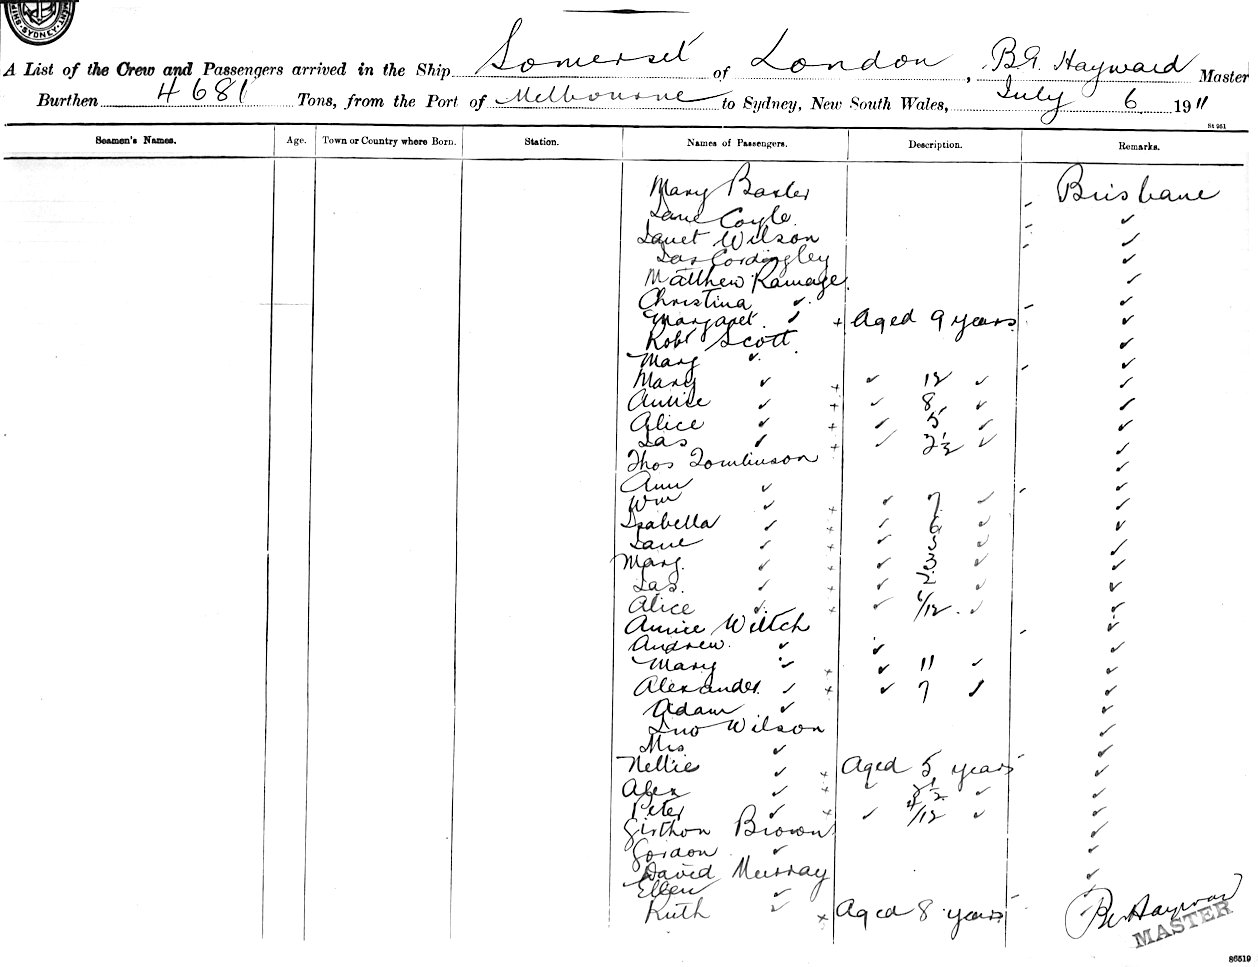 SYDNEY
A List of the Crew and Passengers arrived in the Ship Somerset of London, B.G. Hayward Master
Burthen 4681 Tons, from the Port of Melbourne to Sydney, New South Wales, July 6 1911
St 951
Seamen's Names. Age. Town or Country where Born. Station. Names of Passengers. Description. Remarks.
Mary Baxter Brisbane
Jane Coyle ✓
Janet Wilson ✓
Jas Cordingley ✓
Matthew Ramage ✓
Christina ✓ ✓
Margaret ✓ + Aged 9 years ✓
Robt Scott ✓
Mary ✓ ✓
Mary ✓ + ✓ 12 ✓ ✓
Annie ✓ + ✓ 8 ✓ ✓
Alice ✓ + ✓ 5 ✓ ✓
Jas ✓ + ✓ 2½ ✓ ✓
Thos Tomlinson ✓
Ann ✓ ✓
Wm ✓ + ✓ 7 ✓ ✓
Isabella ✓ + ✓ 6 ✓ ✓
Jane ✓ + ✓ 5 ✓ ✓
Mary ✓ + ✓ 3 ✓ ✓
Jas. ✓ + ✓ 2 ✓ ✓
Alice ✓ + ✓ /12 ✓ ✓
Annie Wiltch ✓
Andrew ✓ ✓ ✓
Mary ✓ + ✓ 11 ✓ ✓
Alexander ✓ + ✓ 7 ✓ ✓
Adam ✓ ✓
Jno Wilson ✓
Mrs ✓ ✓
Nellie ✓ + Aged 5 years ✓
Alex ✓ + ✓ ½ ✓ ✓
Peter ✓ + ✓ /12 ✓ ✓
Girthon Brown ✓
Gordon ✓ ✓
David Murray ✓
Ellen ✓ ✓
Ruth ✓ + Aged 8 years
Hayward
MASTER
86519